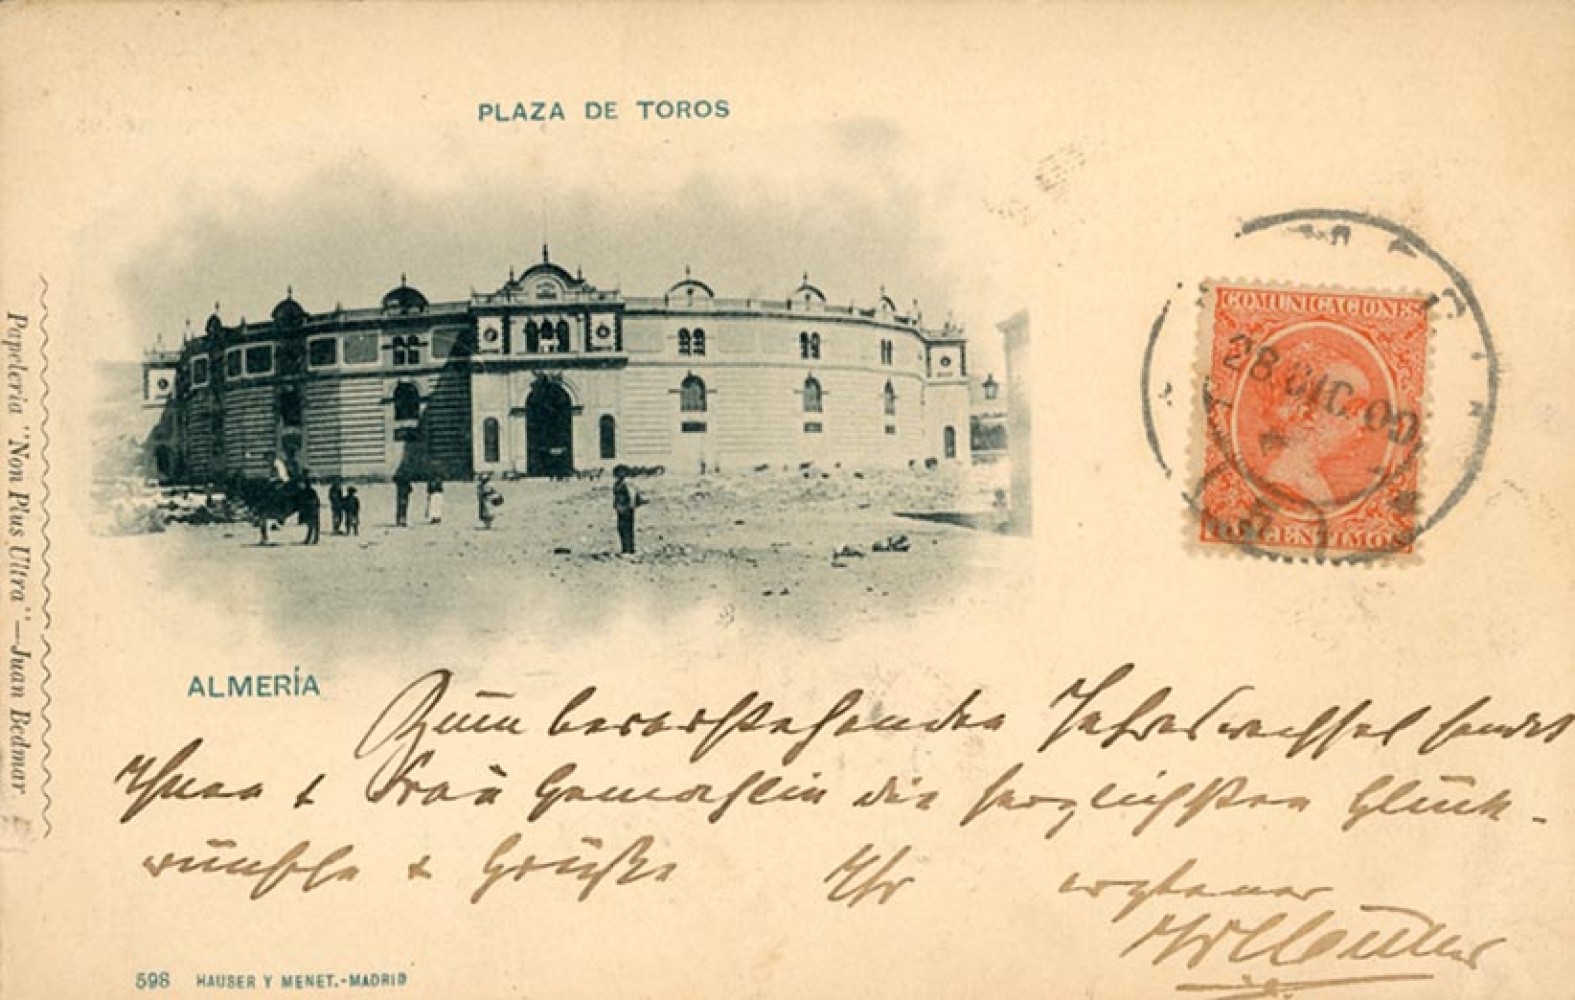 PLAZA DE TOROS
COMUNICACIONES
28 DIC. 00
CENTIMOS
ALMERÍA
Papelería "Non Plus Ultra"—Juan Bedmar
Zum bevorstehenden Jahreswechsel sendet
Ihnen & Frau Gemahlin die herzlichsten Glück-
wünsche & Grüße Ihr ergebener
598 HAUSER Y MENET.-MADRID